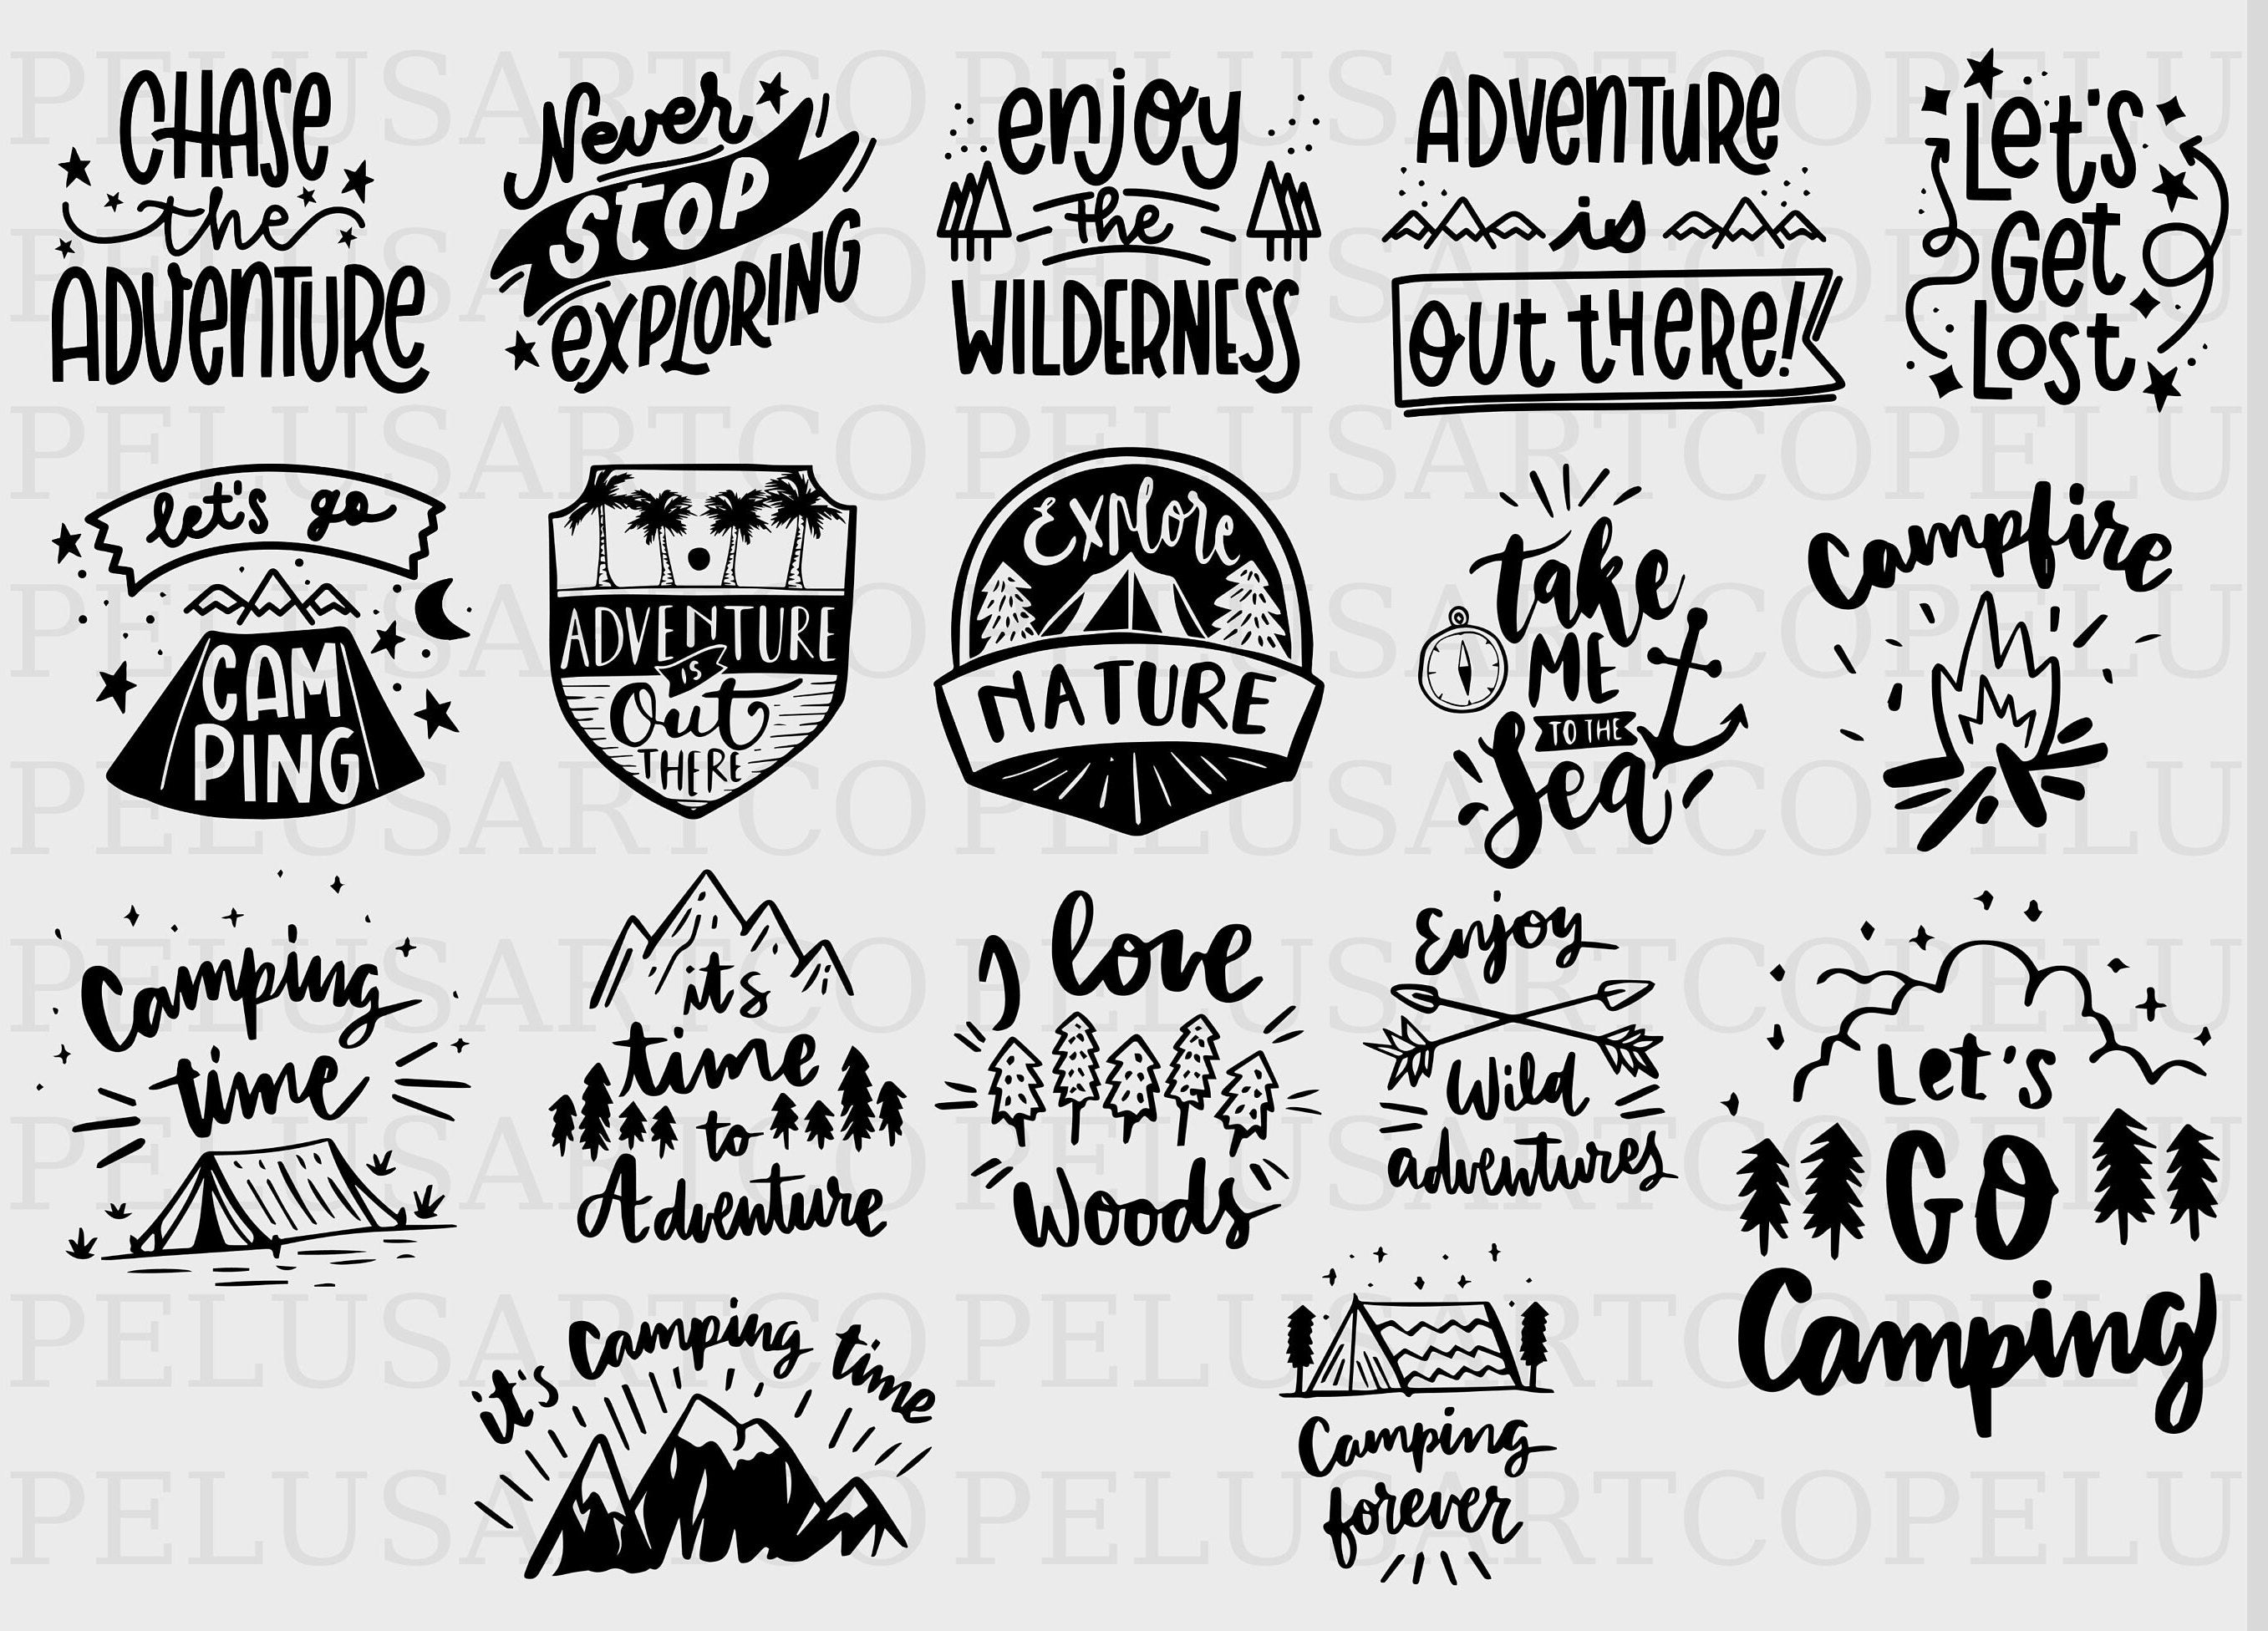 CHASE
the
ADVENTURE
Never
STOP
EXPLORING
enjoy
the
WILDERNESS
ADVENTURE
is
OUT THERE!
Let's
Get
Lost
let's go
CAM
PING
ADVENTURE
IS
Out
THERE
Explore
NATURE
take
ME
TO THE
Sea
Campfire
Camping
time
it's
time
to
Adventure
I love
Woods
Enjoy
Wild
adventures
Let's
GO
Camping
it's Camping time
Camping
forever
PELUSARTCO PELUSARTCOPELU
PELUSARTCO PELUSARTCOPELU
PELUSARTCO PELUSARTCOPELU
PELUSARTCO PELUSARTCOPELU
PELUSARTCO PELUSARTCOPELU
PELUSARTCO PELUSARTCOPELU
PELUSARTCO PELUSARTCOPELU
PELUSARTCO PELUSARTCOPELU
PELUSARTCO PELUSARTCOPELU